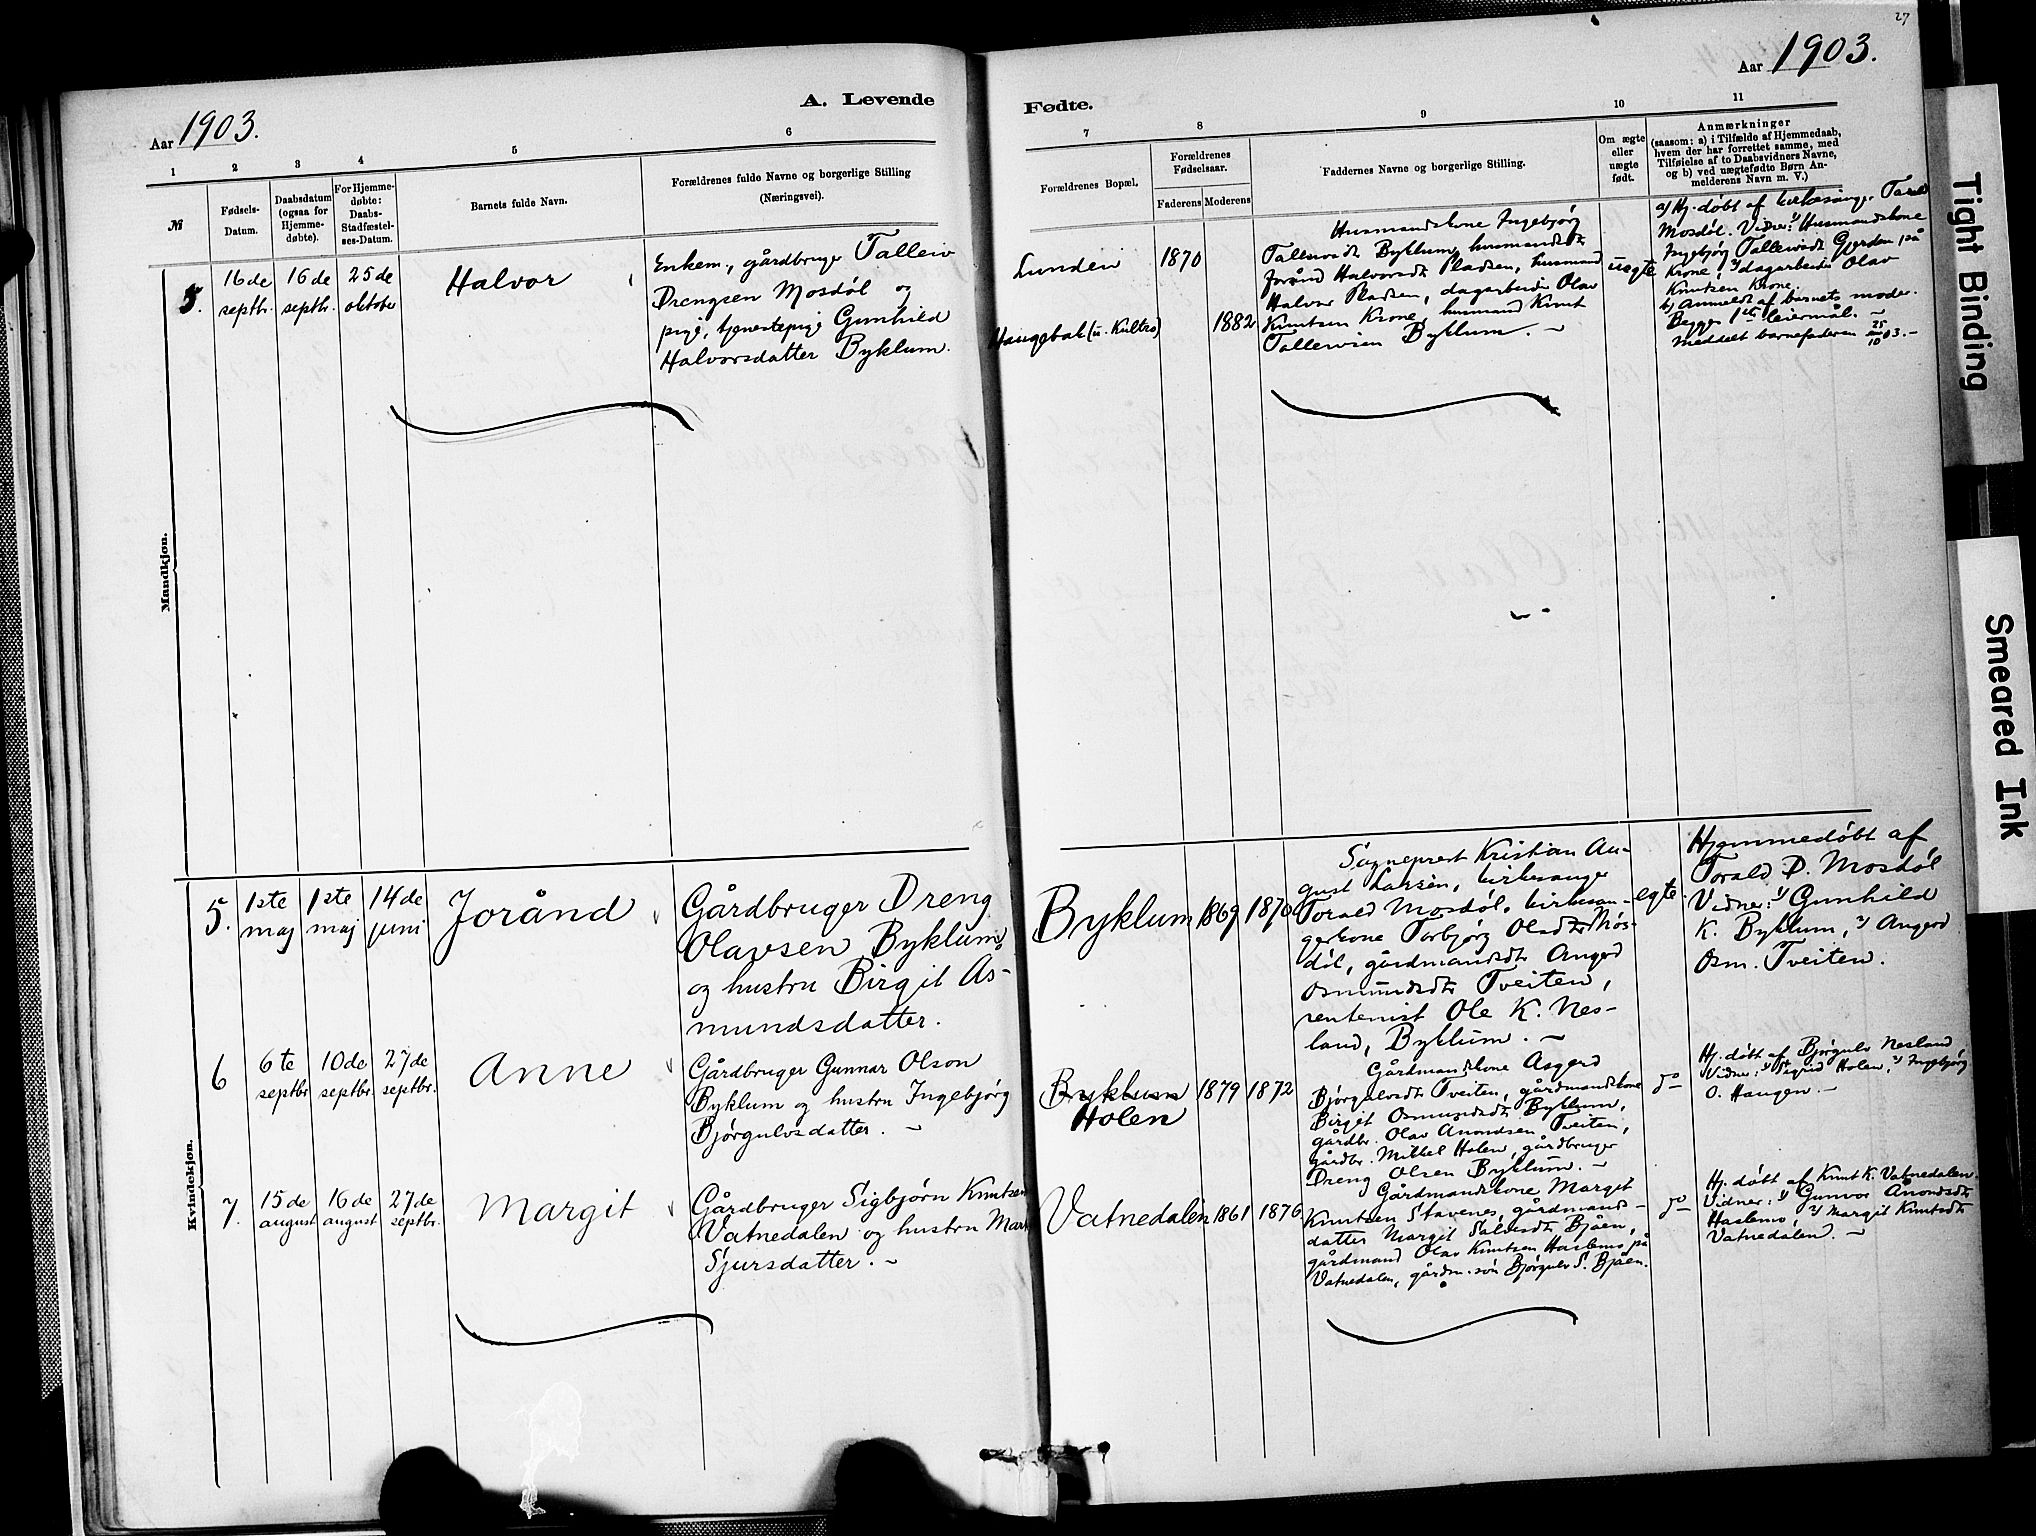 27
Aar 1903.
A. Levende
1 2 3 4 5 6
№
Fødsels-
Datum.
Daabsdatum
(ogsaa for
Hjemme-
døbte).
For Hjemme-
døbte:
Daabs-
Stadfæstel-
ses-Datum.
Barnets fulde Navn.
Forældrenes fulde Navne og borgerlige Stilling
(Næringsvei).
Mandkjøn.
5. 16de septbr. 16de septbr. 25de oktober Halvor
Enkem., gårdbruger Talleiv
Drengsen Mosdøl og
pige, tjenestepige Gunhild
Halvorsdatter Byklum.
Kvindekjøn.
5. 1ste maj 1ste maj 14de juni Jorånd
Gårdbruger Dreng
Olavsen Byklum,
og hustru Birgit As-
mundsdatter.
6 6te septbr. 10de septbr. 27de septbr. Anne
Gårdbruger Gunnar Olson
Byklum og hustru Ingebjørg
Bjørgulvsdatter. –
7. 15de august 16de august 27de septbr. Margit
Gårdbruger Sigbjørn Knutsen
Vatnedalen og hustru
Sjursdatter. –
Fødte.
Aar 1903.
7 8 9 10 11
Forældrenes Bopæl.
Forældrenes
Fødselsaar.
Faderens Moderens
Faddernes Navne og borgerlige Stilling.
Om ægte
eller
uægte
født.
Anmærkninger
(saasom: a) i Tilfælde af Hjemmedaab,
hvem der har forrettet samme, med
Tilføielse af to Daabsvidners Navne,
og b) ved uægtefødte Børn An-
melderens Navn m. V.)
Lunden 1870
Haugebak 1882
Husmandskone Ingebjørg
Tallevsdt Byklum, husmandsdt
Jorånd Halvorsdt Pladsen, husmand
Halvor Pladsen, dagarbeider Olav
Knutsen Krone, husmand Knut
Talleivsen Byklum. –
uegte
a) Hj. døbt af kirkesanger Torald
Mosdøl. Vidner: 1) Husmandskone
Ingebjørg Talleivsdt Gjerden på
Krone, 2) dagarbeider Olav
Knutsen Krone.
b) Anmeldt af barnets moder.
Begges 1ste leiermål. –
Meddelt barnefaderen 25/10 03. –
Byklum 1869 1870
Sogneprest Kristian Au-
gust Larsen, kirkesanger
Torald Mosdøl, kirkesan-
gerkone Torbjørg Olsdtr Mos-
døl, gårdmandsdt Angerd
Osmundsdt Tveiten,
rentenist Ole K. Nes-
land, Byklum. –
egte.
Hjemmedøbt af
Torald D. Mosdøl
Vidner: 1) Gunhild
K. Byklum, 2) Angerd
Osm. Tveiten.
Byklum
Holen 1879 1872
Gårdmandskone Asgerd
Bjørgulvsdt Tveiten, gårdmandskone
Birgit Osmundsdt Byklum,
gårdbr. Olav Anondsen Tveiten,
gårdbr. Mikkel Holen, gårdbruger
Dreng Olsen Byklum. –
do
Hj. døbt af Bjørgulv Nesland
Vidner: 1) Sigrid Holen, 2) Ingebjørg
O. Haugen. –
Vatnedalen 1861 1876
Gårdmandskone Margit
Knutsen Stavenes, gårdmands-
datter Margit Salvesdt Bjåen,
gårdmand Olav Knutsen Haslemo på
Vatnedalen, gårdm.søn Bjørgulv S. Bjåen.
do
Hj. døbt af Knut K. Vatnedalen.
Vidner: 1) Gunvor Anondsdt
Haslemo, 2) Margit Knutsdt
Vatnedalen. –
Tight Binding
Smeared Ink